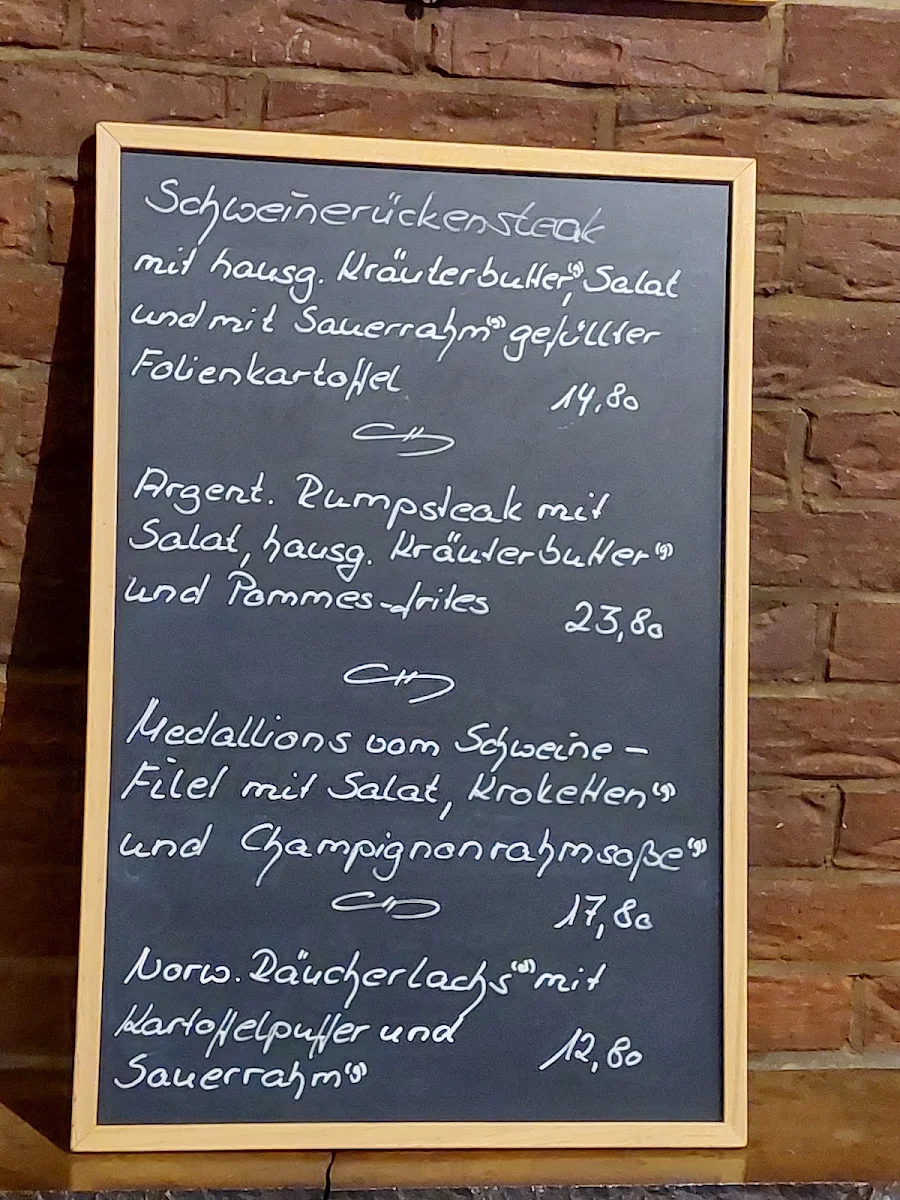 Schweinerückensteak
mit hausg. Kräuterbutter⁽ᵍ⁾, Salat
und mit Sauerrahm⁽ᵍ⁾ gefüllter
Folienkartoffel 14,80
Argent. Rumpsteak mit
Salat, hausg. Kräuterbutter⁽ᵍ⁾
und Pommes-frites 23,80
Medallions vom Schweine-
Filet mit Salat, Kroketten⁽ᵍ⁾
und Champignonrahmsoße⁽ᵍ⁾
17,80
Norw. Räucherlachs⁽ᵈ⁾ mit
Kartoffelpuffer und
Sauerrahm⁽ᵍ⁾ 12,80